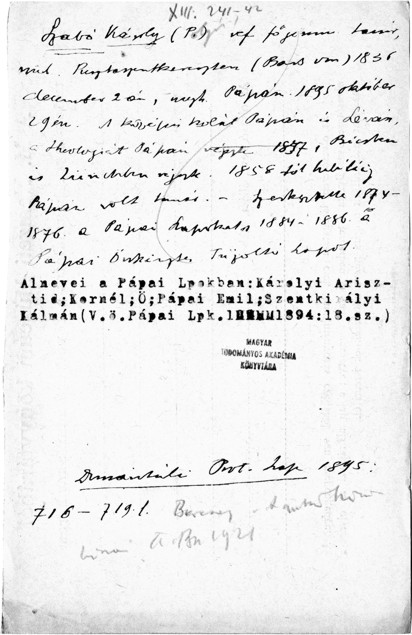 XIII. 241-42
Szabó Károly (P.) ref főgimn. tanár,
szül. Pusztaszentkereszten (Bars vm) 1836
december 2án, megh. Pápán. 1895 október
29én. A középiskolát Pápán és Léván,
a theologiát Pápán végezte 1857, Bécsben
és Zürichben végzett. 1858 tól haláláig
Pápán volt tanár. – Szerkesztette 1874-
1876. a Pápai Lapokat 1884-1886. a
Pápai Önkéntes Tűzoltó Lapot.
Álnevei a Pápai Lpokban:Károlyi Arisz-
tid;Kornél;Ő;Pápai Emil;Szentkirályi
Kálmán(V.ö.Pápai Lpk. 1894:18.sz.)
MAGYAR
TUDOMÁNYOS AKADÉMIA
KÖNYVTÁRA
Dunántúli Prot. Lap 1895:
716-719.l.
1921